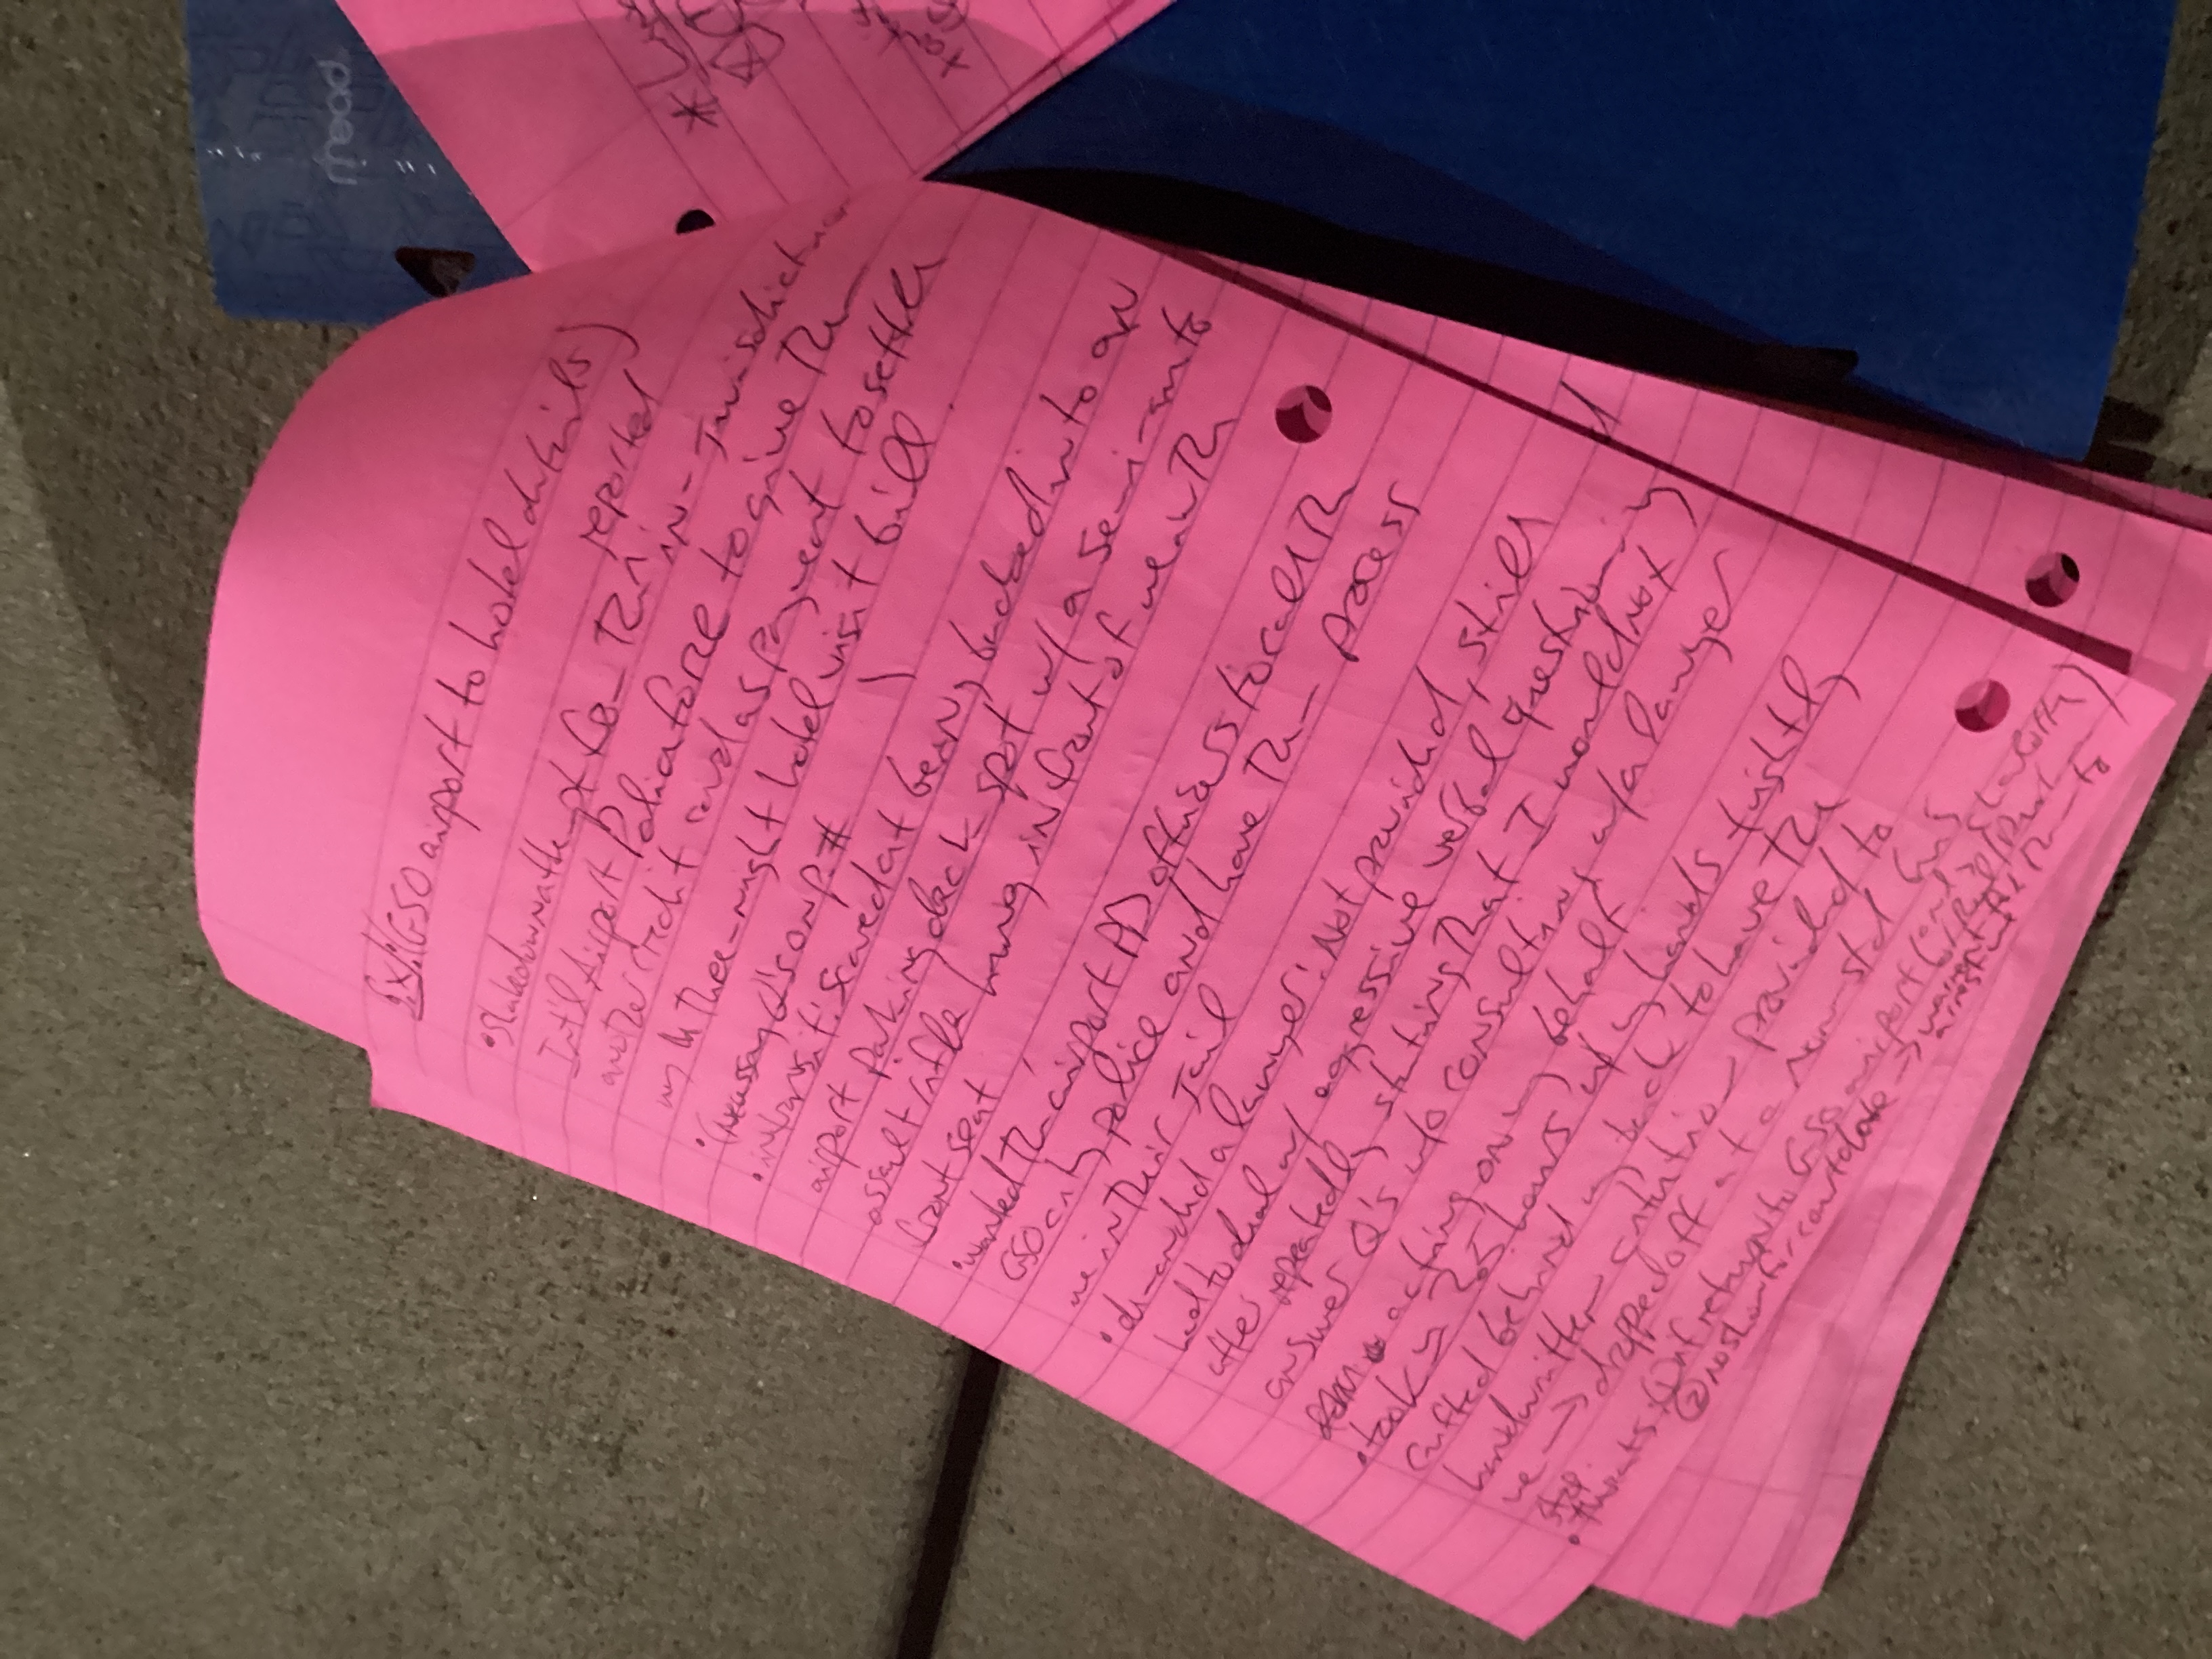 mead
(GSO airport to hotel details)
reported
• Shakedown attempt from The in-Jurisdiction
Int'l Airport Police force to give them
another credit card as payment to settle
my three-night hotel visit bill.
• (necessary Q's on p. # )
• in transit: scared at being backed into an
airport parking deck spot w/ a semi-auto
assault rifle hung in front of me in the
front seat
• wanted the airport PD officers to call the
GSO city police and have them process
me in their Jail
• demanded a lawyer: Not provided, still
had to deal w/ aggressive verbal questioning
after repeatedly stating that I would not
answer Q's w/o consulting w/ a lawyer
acting on my behalf
• took ≈ 2.5 hours w/ my hands tightly
cuffed behind my back to have the
handwritten citation provided to
me → dropped off at a non-std bus
stop.
• threats: ① if return to GSO airport (and/or Sheraton)
② no show for court date → warrant